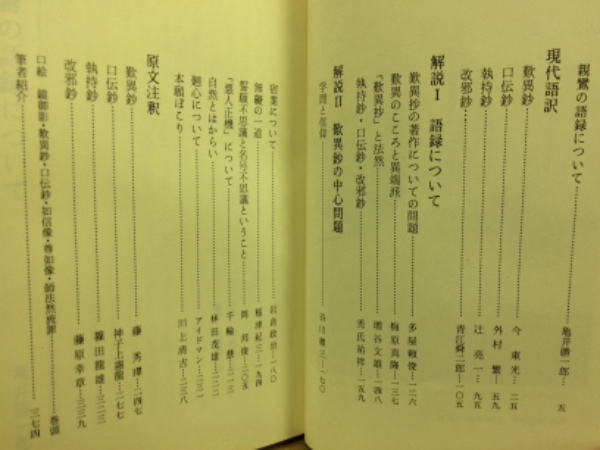 親鸞の語録について……亀井勝一郎… 五
現代語訳
歎異鈔……今 東光… 二五
口伝鈔……外村 繁… 五九
執持鈔……辻 亮一… 九五
改邪鈔……青江舜二郎…一〇五
解説Ⅰ 語録について
歎異抄の著作についての問題……多屋頼俊…一二六
歎異のこころと異端派……梅原真隆…一三七
『歎異抄』と法然……増谷文雄…一四八
執持抄・口伝抄・改邪鈔……禿氏祐祥…一五九
解説Ⅱ 歎異抄の中心問題
学問と信仰……谷川徹三…一七〇
宿業について……岩倉政治…一八〇
無礙の一道……稲津紀三…一九四
誓願不思議と名号不思議ということ……雲村俊慥…二〇五
『悪人正機』について……千輪 慧…二一三
自然とはからい……林田茂雄…二二一
廻心について……アイドマン…二三一
本願ぼこり……川上清吉…二三八
原文注釈
歎異鈔……藤 秀璻…二四七
口伝鈔……神子上恵龍…二七七
執持鈔……篠田龍雄…三二三
改邪鈔……藤原幸章…三三九
口絵 鏡御影・歎異鈔・口伝鈔・如信像・尊如像・師法然廃罪……巻頭
筆者紹介……三七四